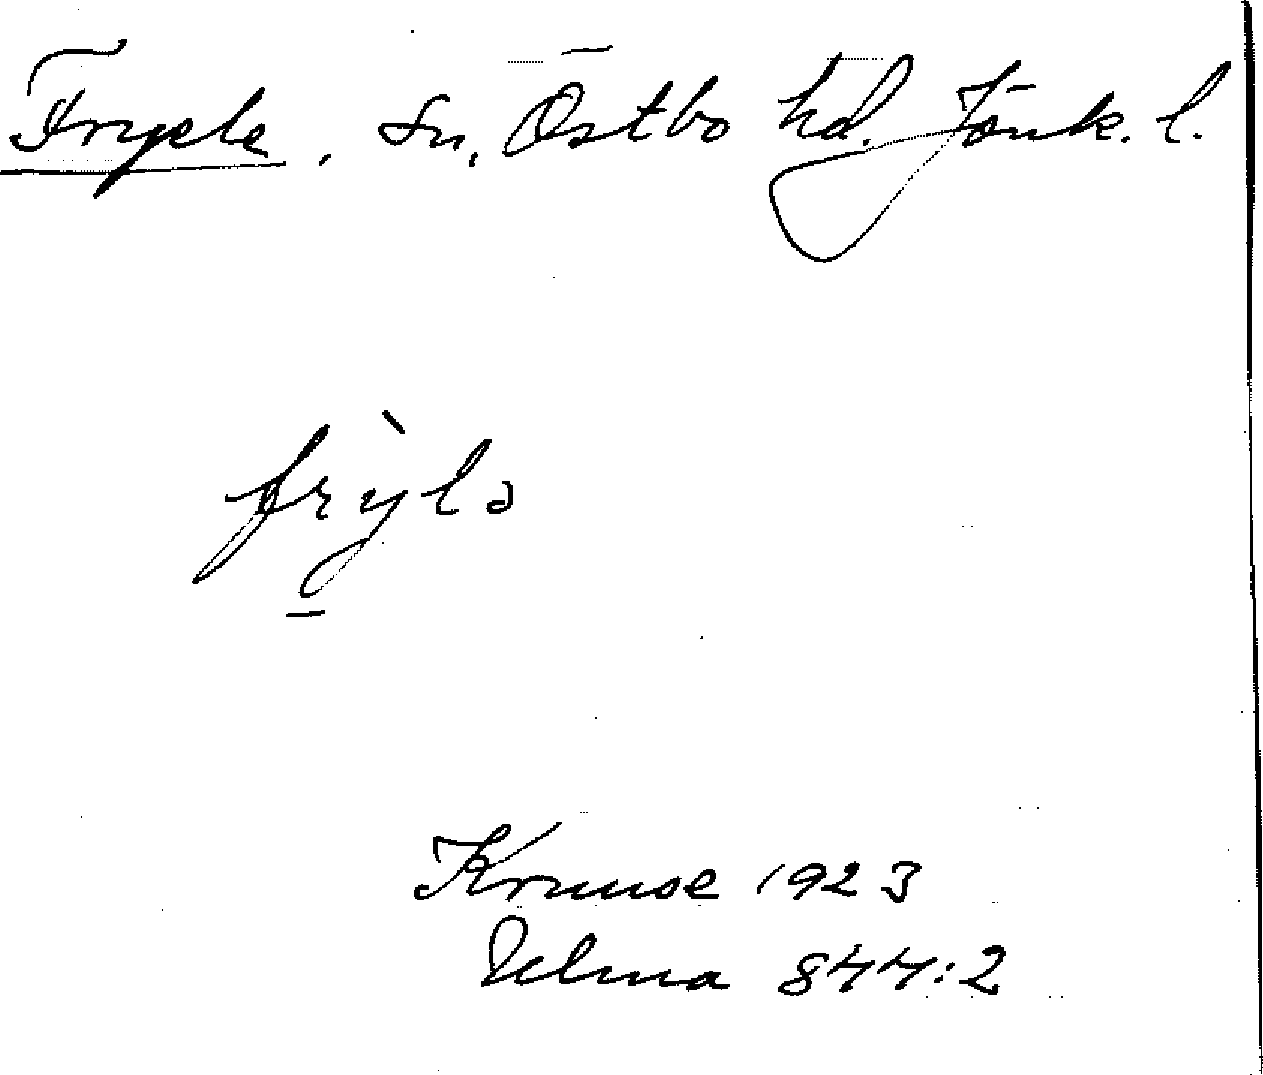 Fryele, sn, Östbo hd. Jönk. l.
frỳlə
Kruuse 1923
Uelma 844:2